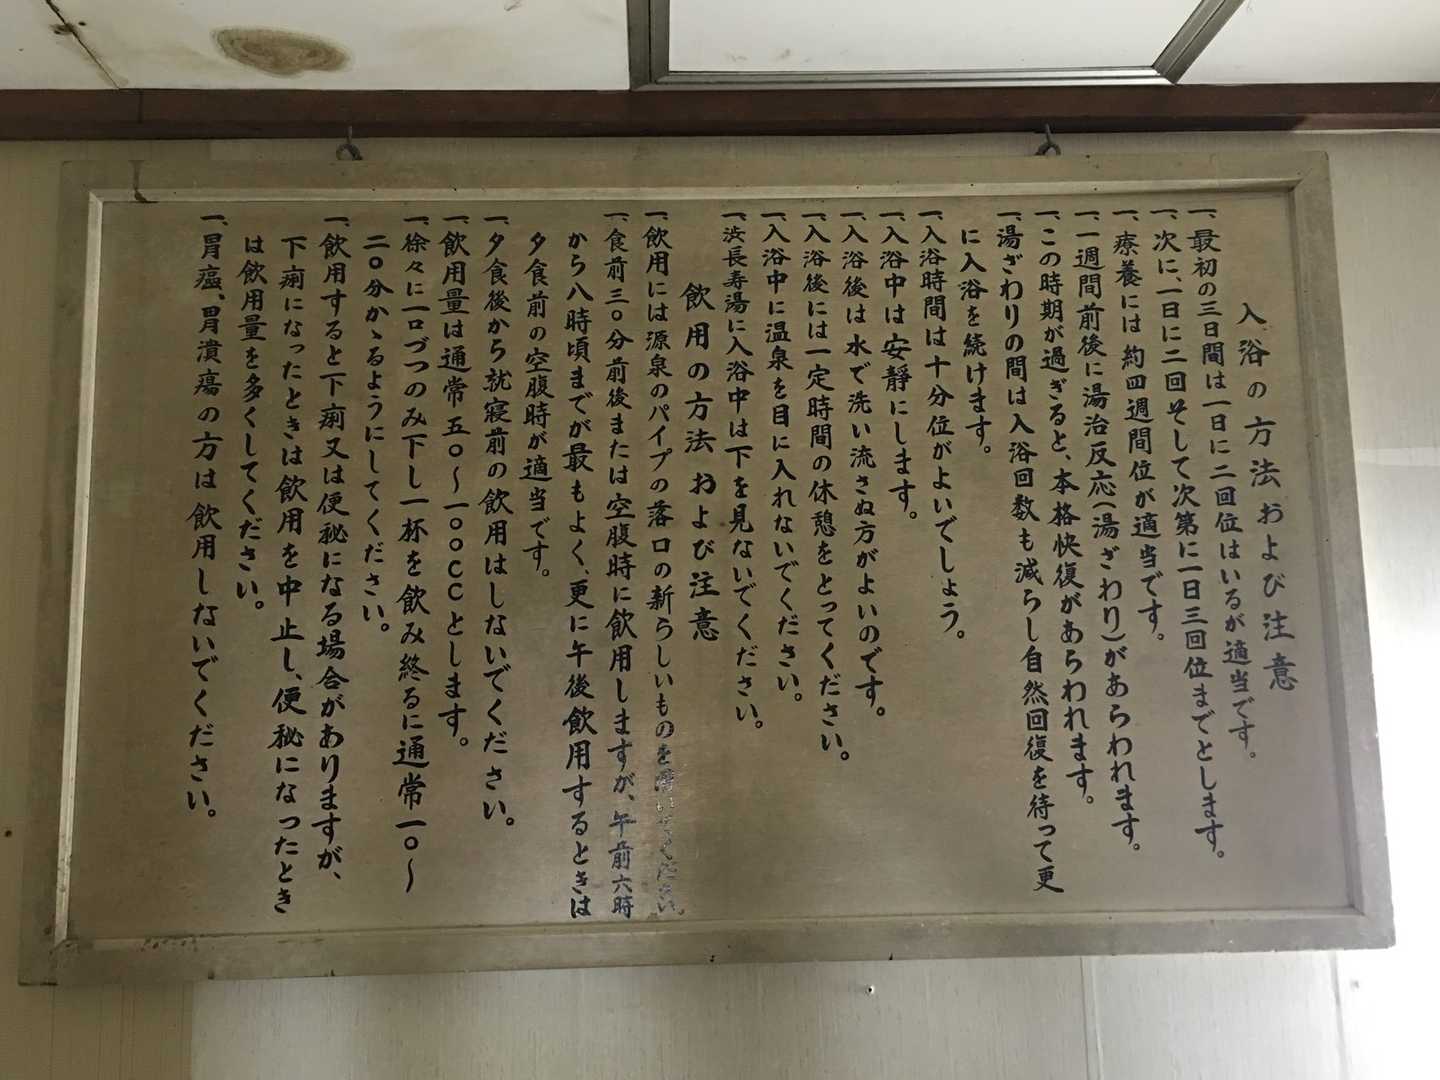 入浴の方法および注意
一、最初の三日間は一日に二回位はいるが適当です。
一、次に、一日に二回そして次第に一日三回位までとします。
一、療養には約四週間位が適当です。
一、一週間前後に湯治反応(湯ざわり)があらわれます。
一、この時期が過ぎると、本格快復があらわれます。
一、湯ざわりの間は入浴回数も減らし自然回復を待って更
に入浴を続けます。
一、入浴時間は十分位がよいでしょう。
一、入浴中は安静にします。
一、入浴後は水で洗い流さぬ方がよいのです。
一、入浴後には一定時間の休憩をとってください。
一、入浴中に温泉を目に入れないでください。
一、渋長寿湯に入浴中は下を見ないでください。
飲用の方法および注意
一、飲用には源泉のパイプの落口の新らしいものを ください。
一、食前三〇分前後または空腹時に飲用しますが、午前六時
から八時頃までが最もよく、更に午後飲用するときは
夕食前の空腹時が適当です。
一、夕食後から就寝前の飲用はしないでください。
一、飲用量は通常五〇〜一〇〇CCとします。
一、徐々に一口づつのみ下し一杯を飲み終るに通常一〇〜
二〇分かゝるようにしてください。
一、飲用すると下痢又は便秘になる場合がありますが、
下痢になったときは飲用を中止し、便秘になったとき
は飲用量を多くしてください。
一、胃癌、胃潰瘍の方は飲用しないでください。